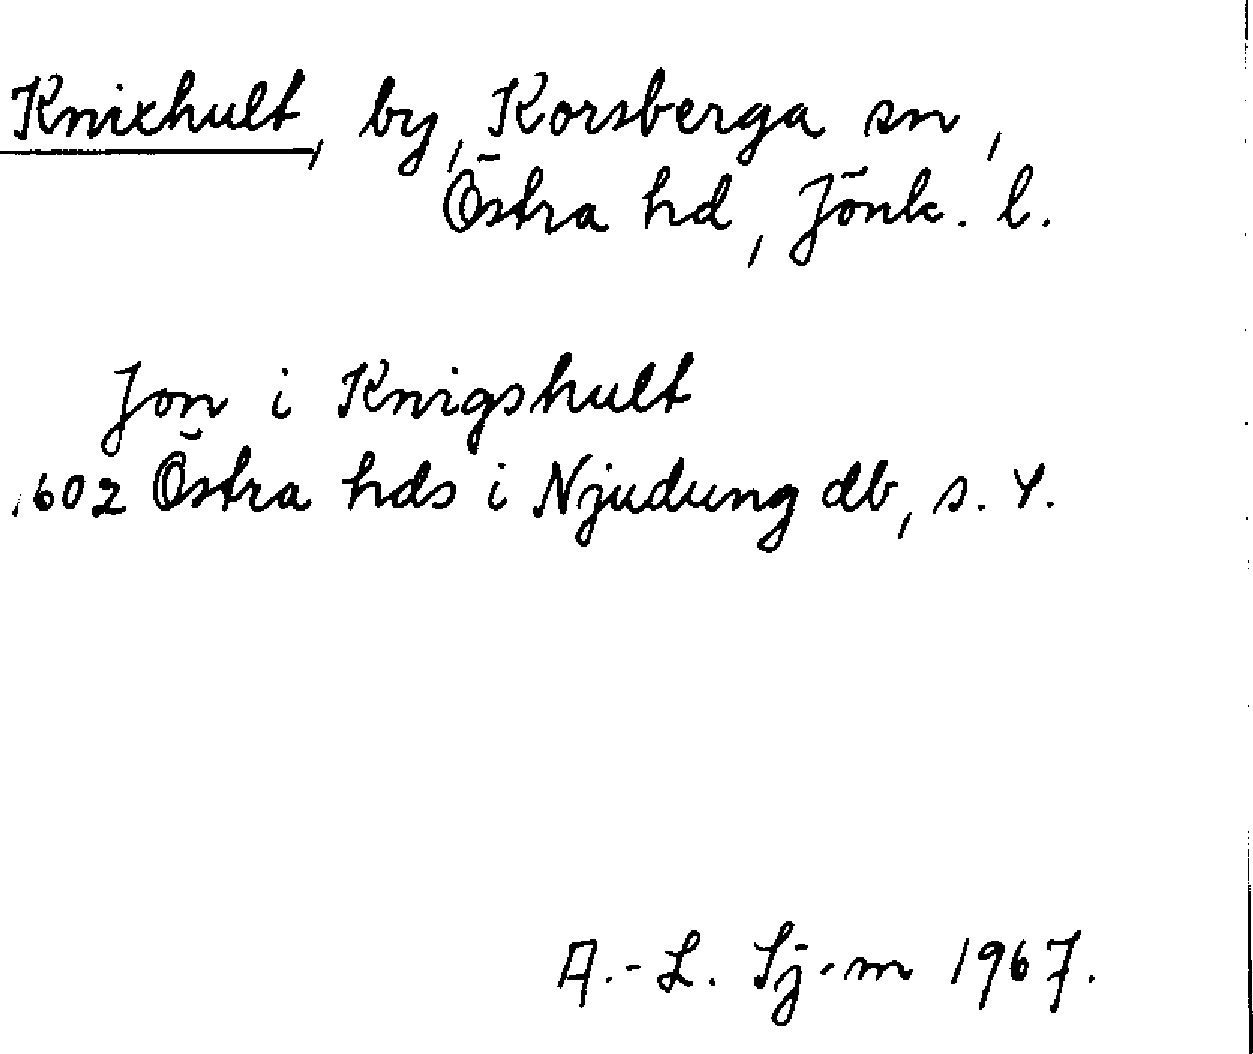 Knixhult, by, Korsberga sn,
Östra hd, Jönk. l.
Jon i Knigshult
1602 Östra hds i Njudung db, s. 4.
A.-L. Sj-m 1967.